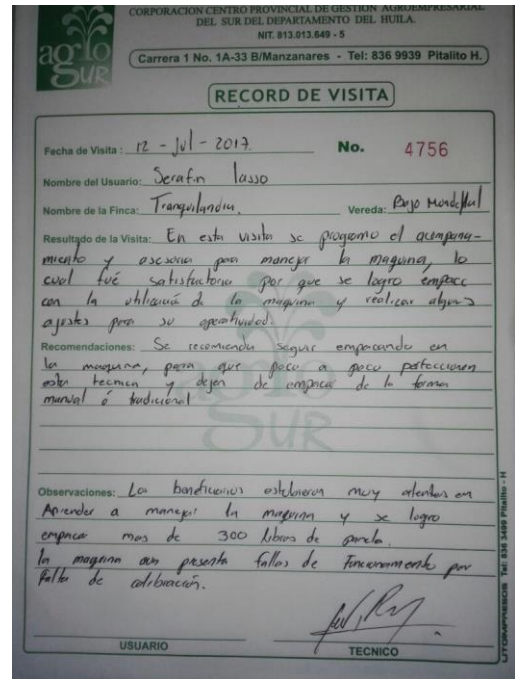 CORPORACION CENTRO PROVINCIAL DE GESTION AGROEMPRESARIAL
DEL SUR DEL DEPARTAMENTO DEL HUILA.
NIT. 813.013.649 - 5
agro
SUR
Carrera 1 No. 1A-33 B/Manzanares - Tel: 836 9939 Pitalito H.
RECORD DE VISITA
Fecha de Visita : 12 - Jul - 2017. No. 4756
Nombre del Usuario: Serafin lasso
Nombre de la Finca: Tranquilandia. Vereda: Bajo
Resultado de la Visita: En esta visita se programo el acompaña-
miento y asesoria para manejar la maquina, lo
cual fué satisfactorio por que se logro empacar
con la utilización de la maquina y realizar algunos
ajustes para su operatividad.
Recomendaciones: Se recomienda seguir empacando en
la maquina, para que poco a poco perfeccionen
esta tecnica y dejen de empacar de la forma
manual ó tradicional
agro
SUR
Observaciones: Los beneficiarios estubieron muy atentos en
Aprender a manejar la maquina y se logro
empacar mas de 300 libras de panela.
la maquina aun presenta fallas de Funcionamiento por
Falta de calibración.
USUARIO TECNICO
LITOIMPRESOS Tel: 836 3499 Pitalito - H